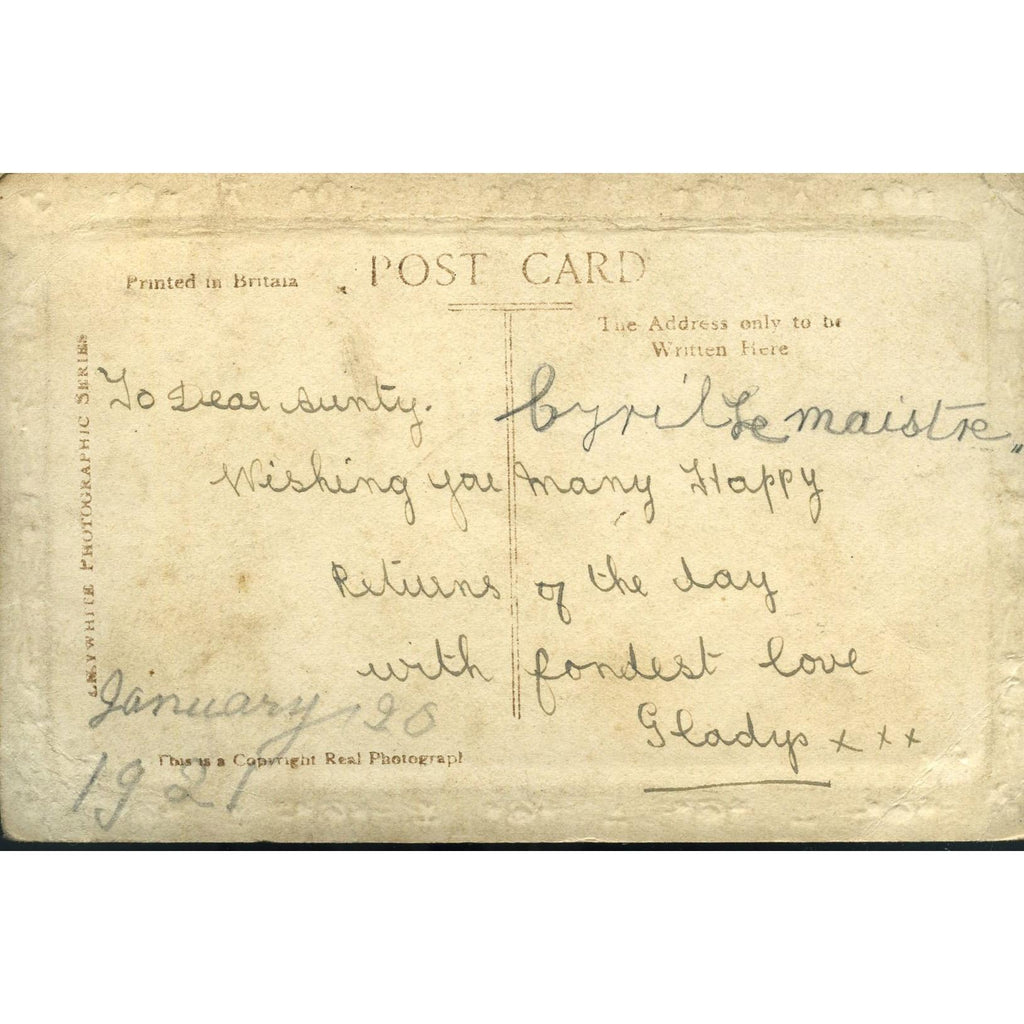 POST CARD
Printed in Britain
The Address only to be
Written Here
PHOTOGRAPHIC SERIES
To Dear Aunty.
Cyril Le maistre
Wishing you many Happy
Returns of the day
with fondest love
Gladys x x x
January 26
1921
This is a Copyright Real Photograph